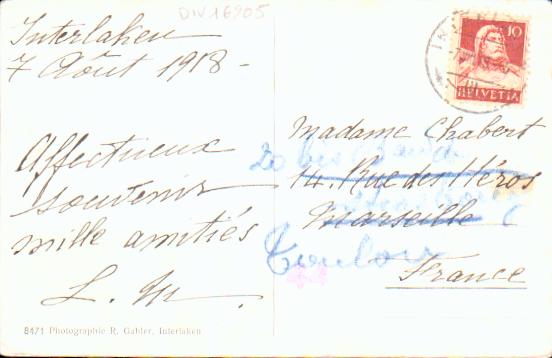 DIV16905
Interlaken
7 Août 1918 -
Affectueux
souvenir
mille amitiés
L. M.
8471 Photographie R. Gabler, Interlaken
10
HELVETIA
Madame Chabert
20 bis
14. Rue des Héros
Marseille
Toulon
France